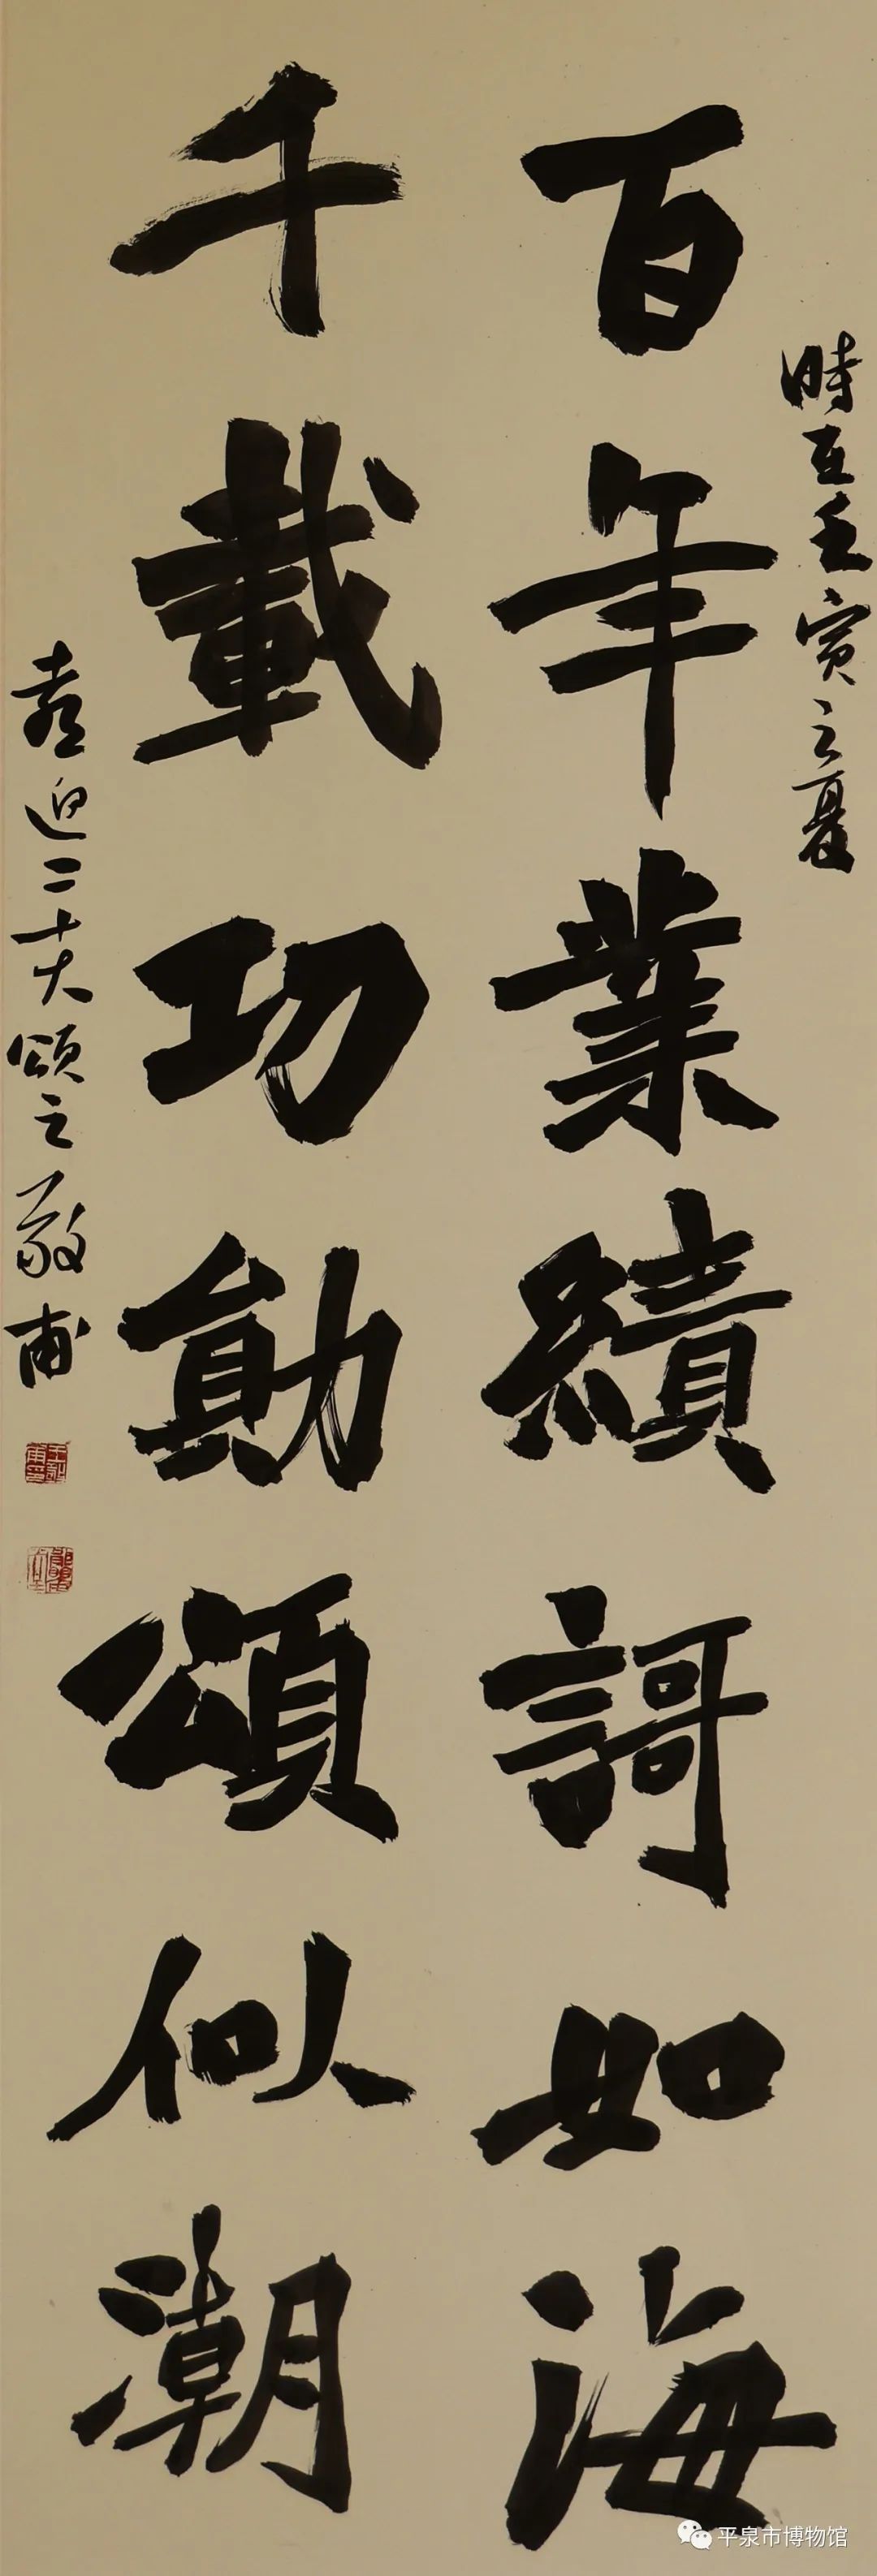 時在壬寅之夏
百年業績謌如海
千載功勛頌似潮
喜迎二十大頌之敬甫
平泉市博物馆